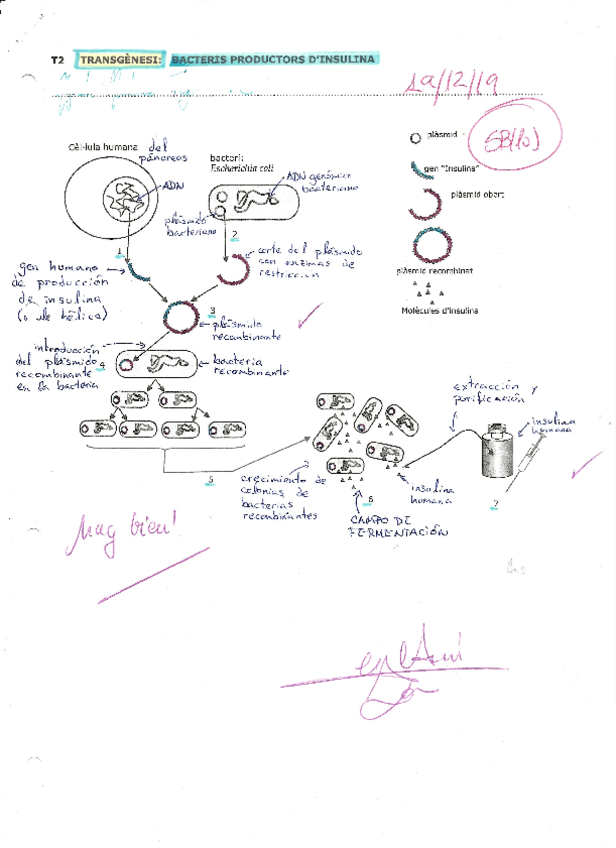 T2 TRANSGÈNESI: BACTERIS PRODUCTORS D'INSULINA
19/12/19
Cèl·lula humana del
páncreas
bacteri:
Escherichia coli
ADN
ADN genómico
bacteriano
plásmido
bacteriano
plàsmid
gen "Insulina"
plàsmid obert
plàsmid recombinat
Molècules d'insulina
1
2
gen humano
de producción
de insulina
corte del plásmido
con enzimas de
restricción
3
plásmido
recombinante
introducción
del plásmido
recombinante
en la bacteria
4
bacteria
recombinante
extracción y
purificación
insulina
humana
5
crecimiento de
colonias de
bacterias
recombinantes
6
CAMPO DE
FERMENTACIÓN
insulina
humana
7
Muy bien!